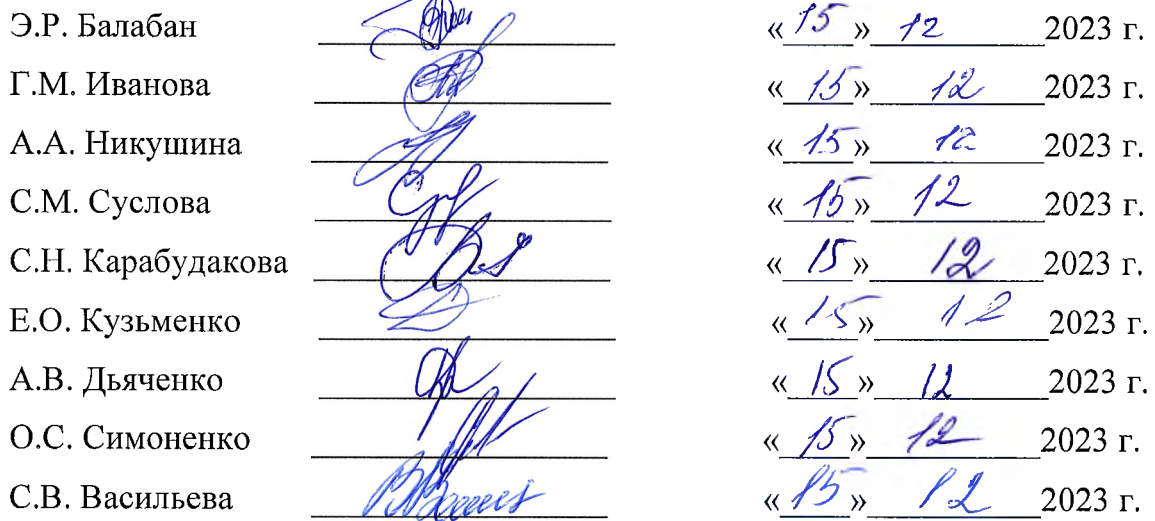 Э.Р. Балабан «15» 12 2023 г.
Г.М. Иванова «15» 12 2023 г.
А.А. Никушина «15» 12 2023 г.
С.М. Суслова «15» 12 2023 г.
С.Н. Карабудакова «15» 12 2023 г.
Е.О. Кузьменко «15» 12 2023 г.
А.В. Дьяченко «15» 12 2023 г.
О.С. Симоненко «15» 12 2023 г.
С.В. Васильева «15» 12 2023 г.